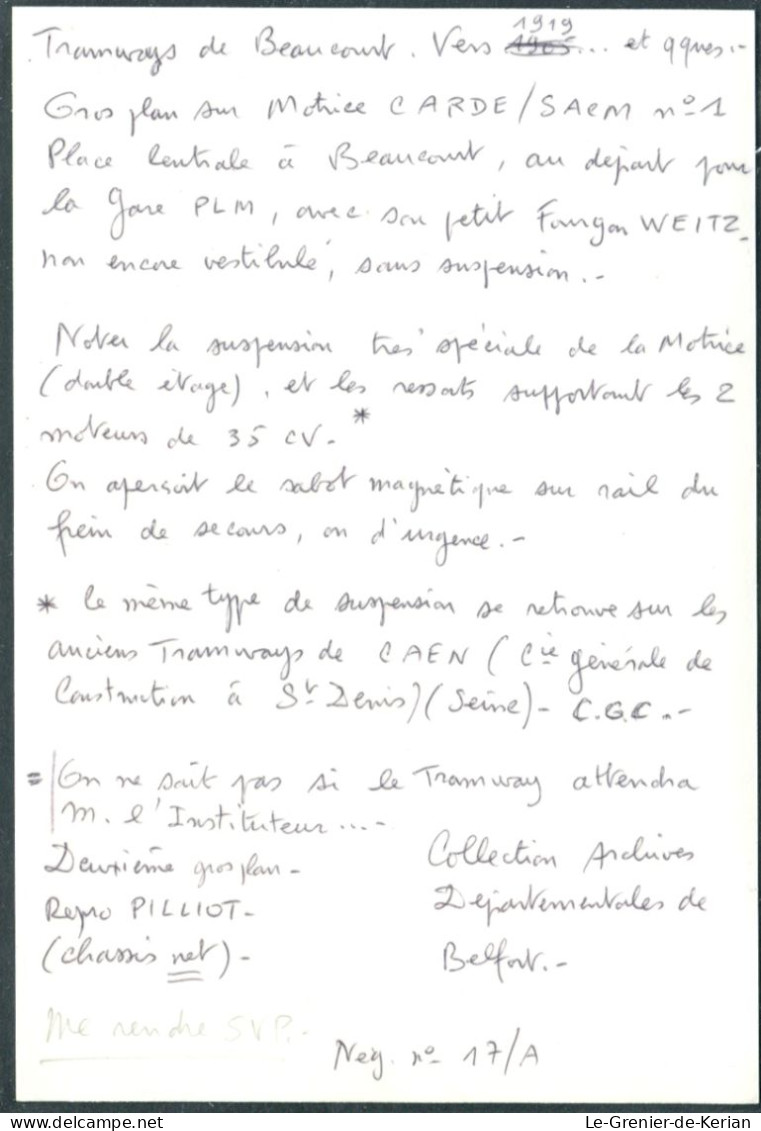 1919
Tramways de Beaucourt. Vers 1905... et qques.-
Gros plan sur Motrice CARDE/SACM n°1
Place Centrale à Beaucourt, au départ pour
la Gare PLM, avec son petit Fourgon WEITZ-
non encore vestibulé, sans suspension.-
Noter la suspension très spéciale de la Motrice
(double étage), et les ressorts supportant les 2
moteurs de 35 CV-*
On aperçoit le sabot magnétique sur rail du
frein de secours, ou d'urgence.-
* le même type de suspension se retrouve sur les
anciens Tramways de CAEN (Cie générale de
Construction à St Denis) (Seine)- C.G.C.-
= On ne sait pas si le Tramway attendra
M. l'Instituteur...-
Deuxième gros plan-
Repro PILLIOT-
(chassis net)-
Collection Archives
Départementales de
Belfort.-
Me rendre SVP.-
Neg. n° 17/A
Le-Grenier-de-Kerian